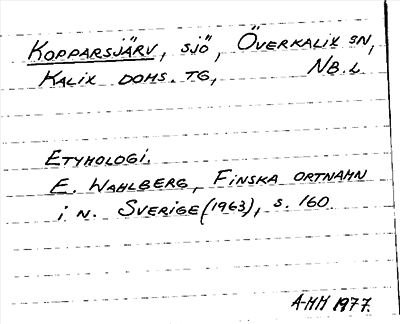 KOPPARSJÄRV, SJÖ, ÖVERKALIX SN,
KALIX DOMS. TG, NB. L
ETYMOLOGI.
E. WAHLBERG, FINSKA ORTNAMN
i N. SVERIGE (1963), s. 160
A-MH 1977.